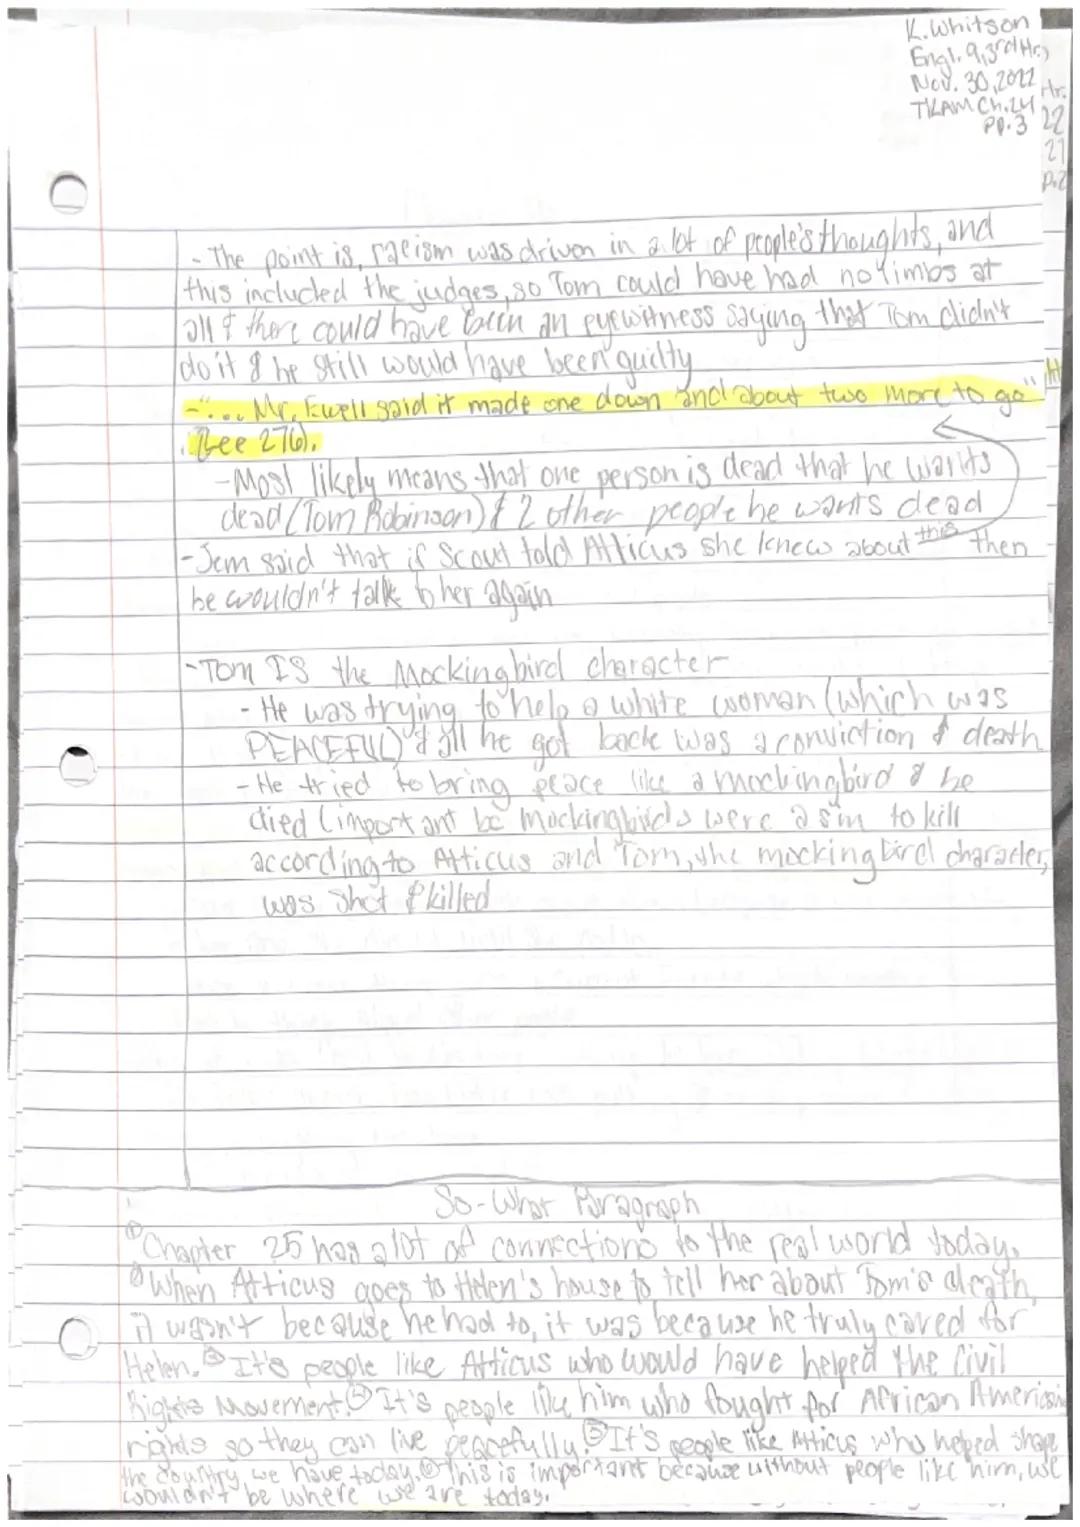 K. Whitson
Engl. 9, 3rd Hr.
Nov. 30, 2022
TKAM Ch. 24
pp. 3
Hr.
22
p. 2
- The point is, racism was driven in a lot of people's thoughts, and
this included the judges, so Tom could have had no limbs at
all & there could have been an eyewitness saying that Tom didn't
do it & he still would have been guilty
- "... Mr. Ewell said it made one down and about two more to go"
(Lee 276).
- Most likely means that one person is dead that he wants
dead (Tom Robinson) & 2 other people he wants dead
- Jem said that if Scout told Atticus she knew about this then
he wouldn't talk to her again
- Tom IS the Mockingbird character
- He was trying to help a white woman (which was
PEACEFUL) & all he got back was a conviction & death
- He tried to bring peace like a mockingbird & he
died (important bc mockingbirds were a sin to kill
according to Atticus and Tom, the mockingbird character,
was shot & killed
So-What Paragraph
① Chapter 25 has a lot of connections to the real world today.
② When Atticus goes to Helen's house to tell her about Tom's death,
it wasn't because he had to, it was because he truly cared for
Helen. ③ It's people like Atticus who would have helped the Civil
Rights Movement. ④ It's people like him who fought for African American
rights so they can live peacefully. ⑤ It's people like Atticus who helped shape
the country we have today. ⑥ This is important because without people like him, we
wouldn't be where we are today.